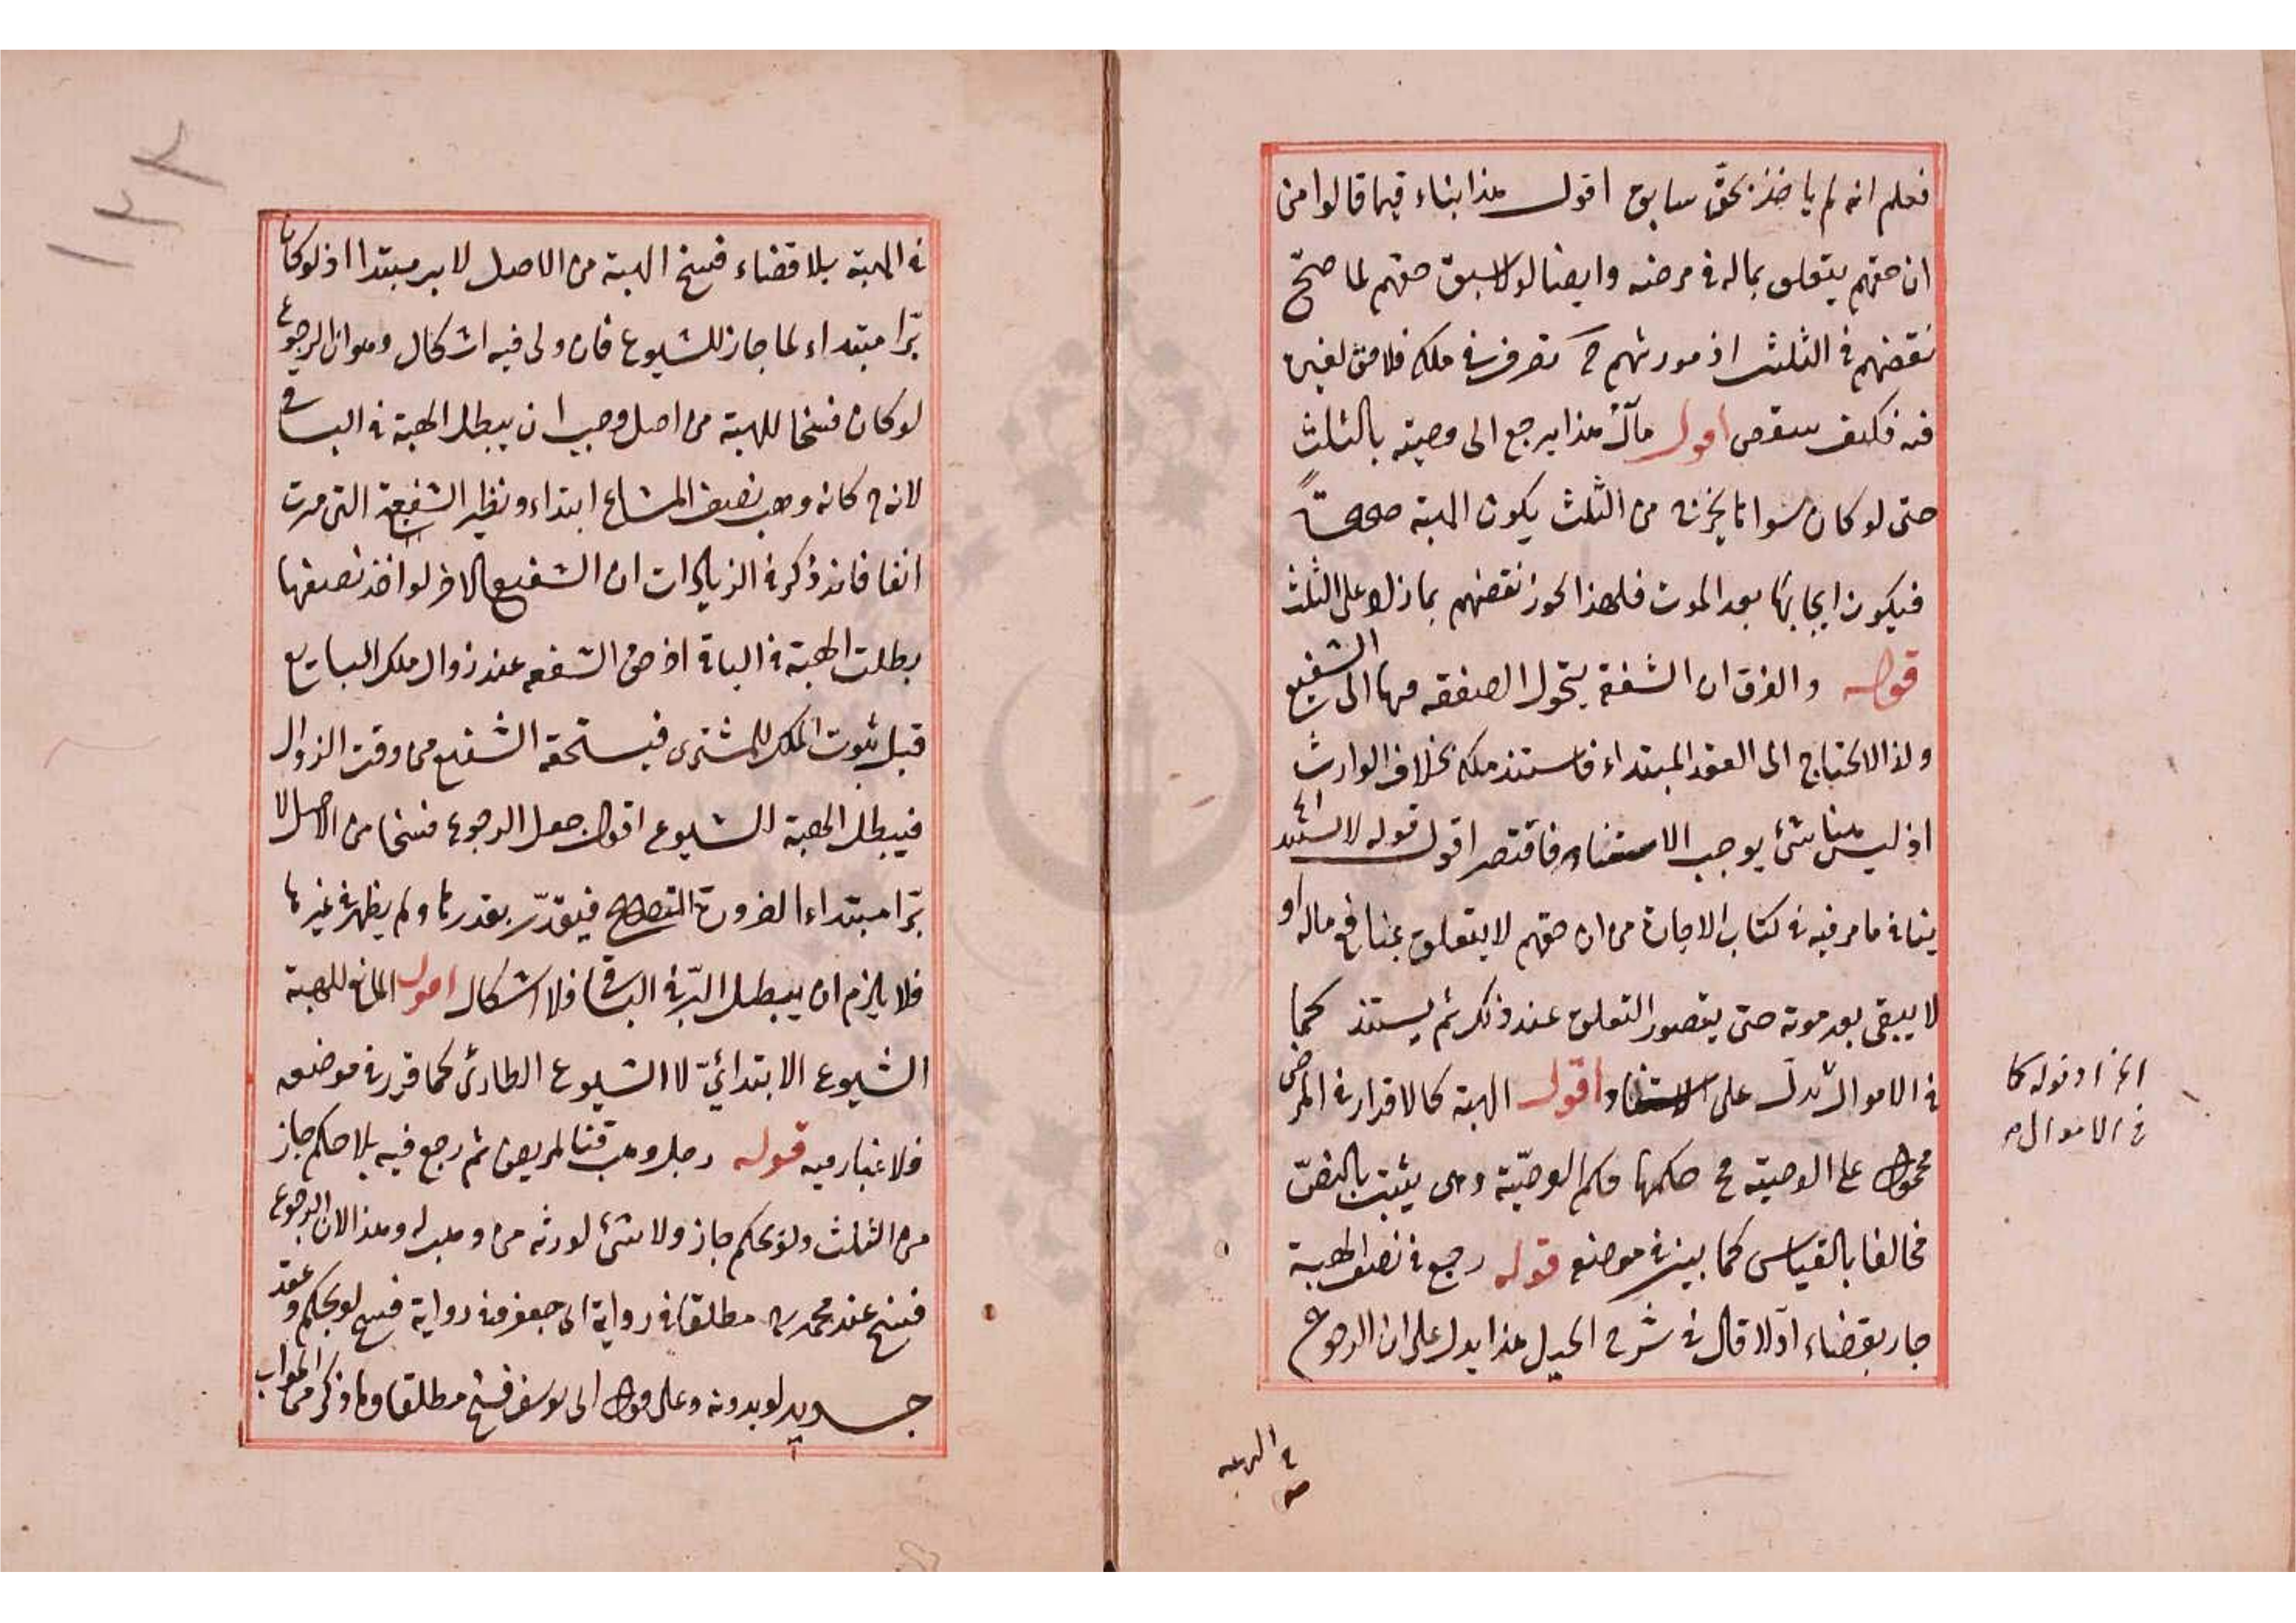 فعلم انه لم ياخذ بحقّ سابق اقول هذا بناء فيما قالوا من
ان حقهم يتعلق بماله في مرضه وايضا لولا سبق حقهم لما صحّ
نقضهم في الثلث اذ مورثهم ح تصرف في ملكه فلا حق لغيره
فيه فكيف ينقض اقول مآل هذا يرجع الى وصيته بالثلث
حتى لو كان سواها يخرج من الثلث يكون الهبة صحيحة
فيكون ايجابها بعد الموت فلهذا يجوز نقضهم بما زاد على الثلث
قوله والفرق ان الشفعة يتحول الصفقة فيها الى الشفيع
ولذا لا يحتاج الى العقد المبتداء فاستند ملكه بخلاف الوارث
اذ ليس هنا شئ يوجب الاستناد فاقتصر اقول قوله لا يستند
ينافي ما مر فيه في كتاب الاجارة من ان حقهم لا يتعلق بمنافع ماله او
لا يبقى بعد موته حتى يتصور التعلق عند ذلك ثم يستند كما
في الاموال يدل على الاستناد اقول الهبة كالاقرار في المرض
محمول على الوصية فح حكمها حكم الوصيّة وهى يثبت بالنصّ
مخالفا بالقياس كما بين في موضعه قوله رجع في نصف الهبة
جاز بقضاء او لا قال في شرح الحيل هذا يدل على ان الرجوع
في الاموال
في الهبة
في الهبة بلا قضاء فسخ الهبة من الاصل لا بر مبتدا اذ لو كان
برّا مبتداء لما جاز للشيوع فان ولى فيه اشكال وهو ان الرجوع
لو كان فسخا للهبة من اصل وجب ان يبطل الهبة في الباقي
لانه ح كانه وهب نصف المشاع ابتداء ونظير الشفعة التى مرت
انفا فانه ذكر في الزيادات ان الشفيع الاخر لو اخذ نصفها
بطلت الهبة في الباقي اذ حق الشفعه عند زوال ملك البايع
قبل ثبوت الملك للمشترى فيستحقه الشفيع من وقت الزوال
فيبطل الهبة للشيوع اقول جعل الرجوع فسخا من الاصل لا
برّا مبتداء لضرورة التصحيح فيقدّر بقدرها ولم يظهر في غيرها
فلا يلزم ان يبطل البرّ في الباقي فلا اشكال اقول المانع للهبة
الشيوع الابتدائيّ لا الشيوع الطارئ كما قرر في موضعه
فلا غبار فيه قوله رجل وهب قنا لمريض ثم رجع فيه بلا حكم جاز
من الثلث ولو بحكم جاز ولا شئ لورثه من وهب له وهذا لان الرجوع
فسخ عند محمد رح مطلقا في رواية ابى جعفر وفي رواية فسخ لو بحكم وعقد
جديد لو بدونه وعلى قول ابى يوسف فسخ مطلقا وما ذكر من الجواب
١٢٢